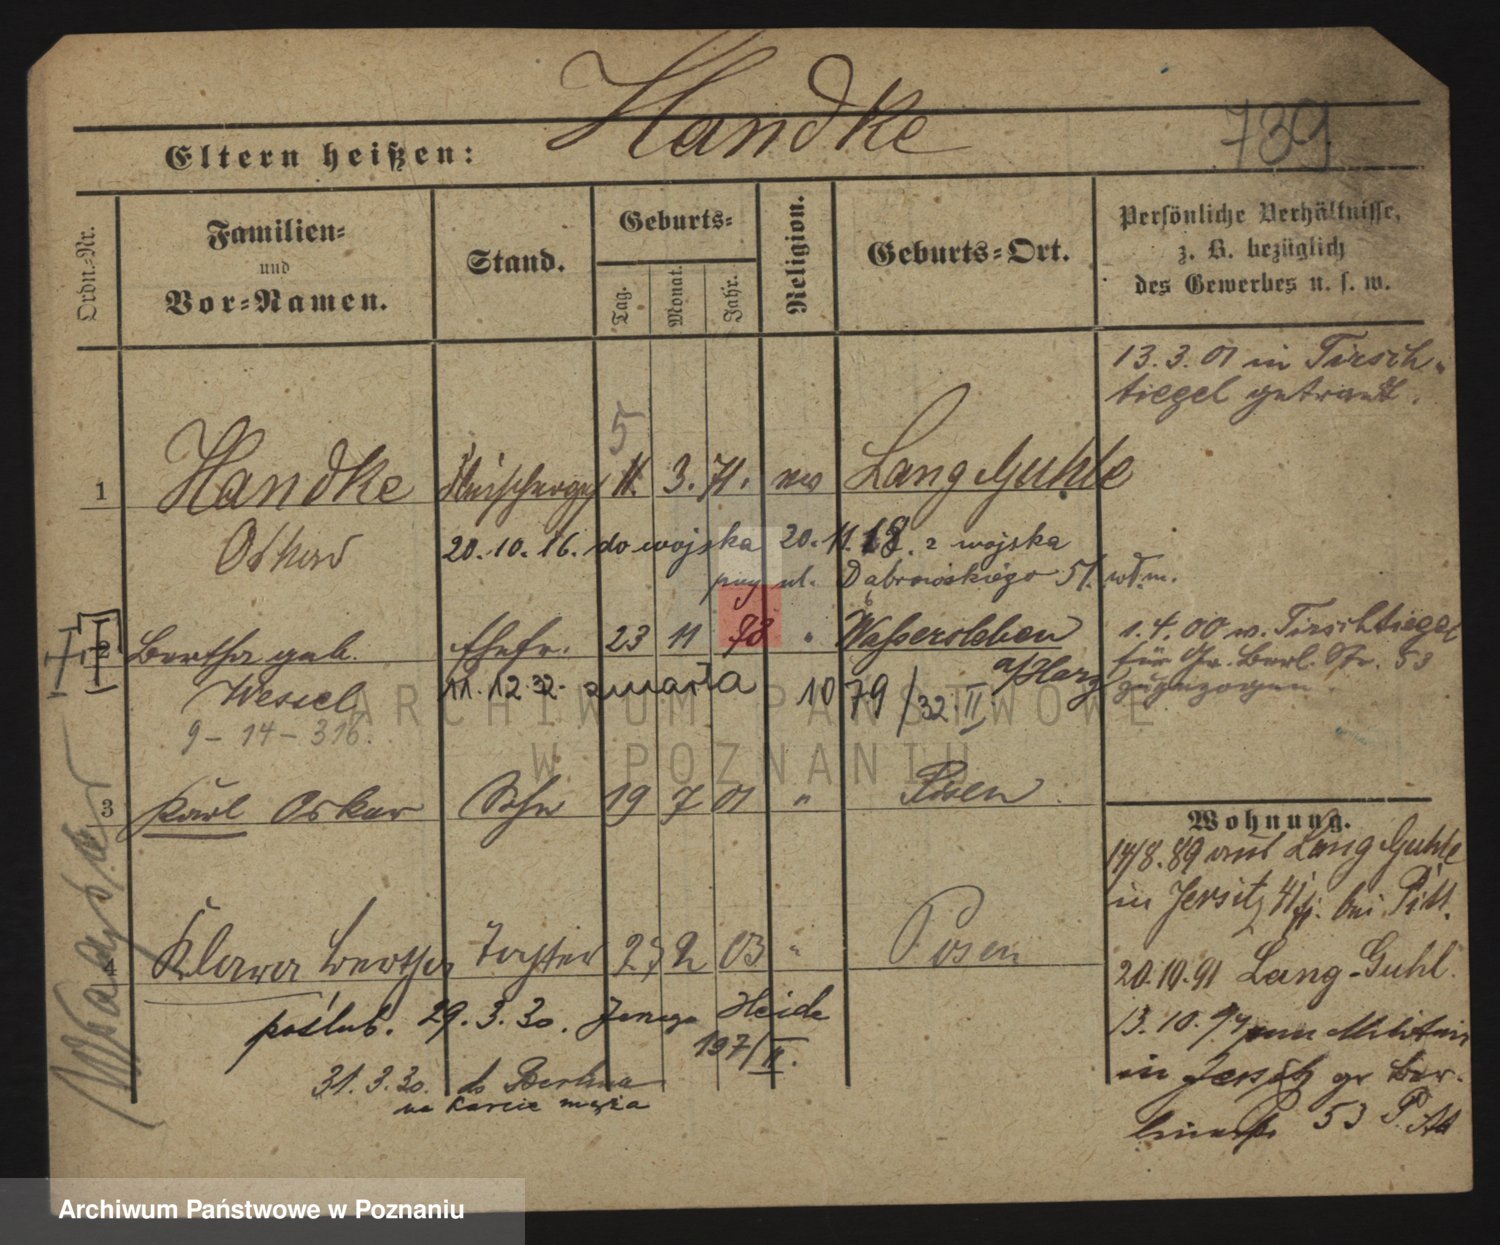 Handke
739
Eltern heißen:
Ordn.-Nr.
Familien-
und
Vor-Namen.
Stand.
Geburts-
Tag.
Monat.
Jahr.
Religion.
Geburts-Ort.
Persönliche Verhältnisse,
z. B. bezüglich
des Gewerbes u. s. w.
13.3.01 in Tirsch-
tiegel getraut.
5
1 Handke 11. 3. 71. ev Lang Guhle
Oskar
20.10.16. do wojska 20.11.18. z wojska
ul. Dąbrowskiego 51. wł.m.
II
2 Bertha geb. Ehefr. 23 11 78 " Wassersleben
a/Harz
Wessel
11.12.32. zmarła 1079/32.II.
9-14-316.
1.4.00 v. Tirschtiegel
für Gr. Berl. Str. 53
zugezogen.
3 Karl Oskar Sohn 19 7 01 " Posen
Wohnung.
17/8.89 aus Lang Guhle
in Jersitz 41 bei Pitt.
4 Klara Bertha Tochter 2 03 " Posen
20.10.91 Lang-Guhl.
poślub. 29.3.30. Heide
197/II.
31.3.30. do Berlina
na karcie męża
13.10.94 zum Militair
in Jersitz gr Ber-
linerstr 53 P.
ARCHIWUM PAŃSTWOWE
W POZNANIU
Archiwum Państwowe w Poznaniu